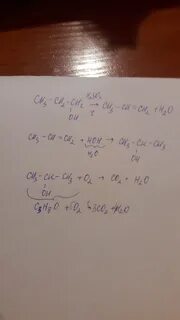 H₂SO₄
CH₃-CH₂-CH₂ → CH₃-CH=CH₂ + H₂O
OH
CH₃-CH=CH₂ + HOH → CH₃-CH-CH₃
H₂O OH
CH₃-CH-CH₃ + O₂ → CO₂ + H₂O
OH
C₃H₈O + O₂ → 3CO₂ + H₂O